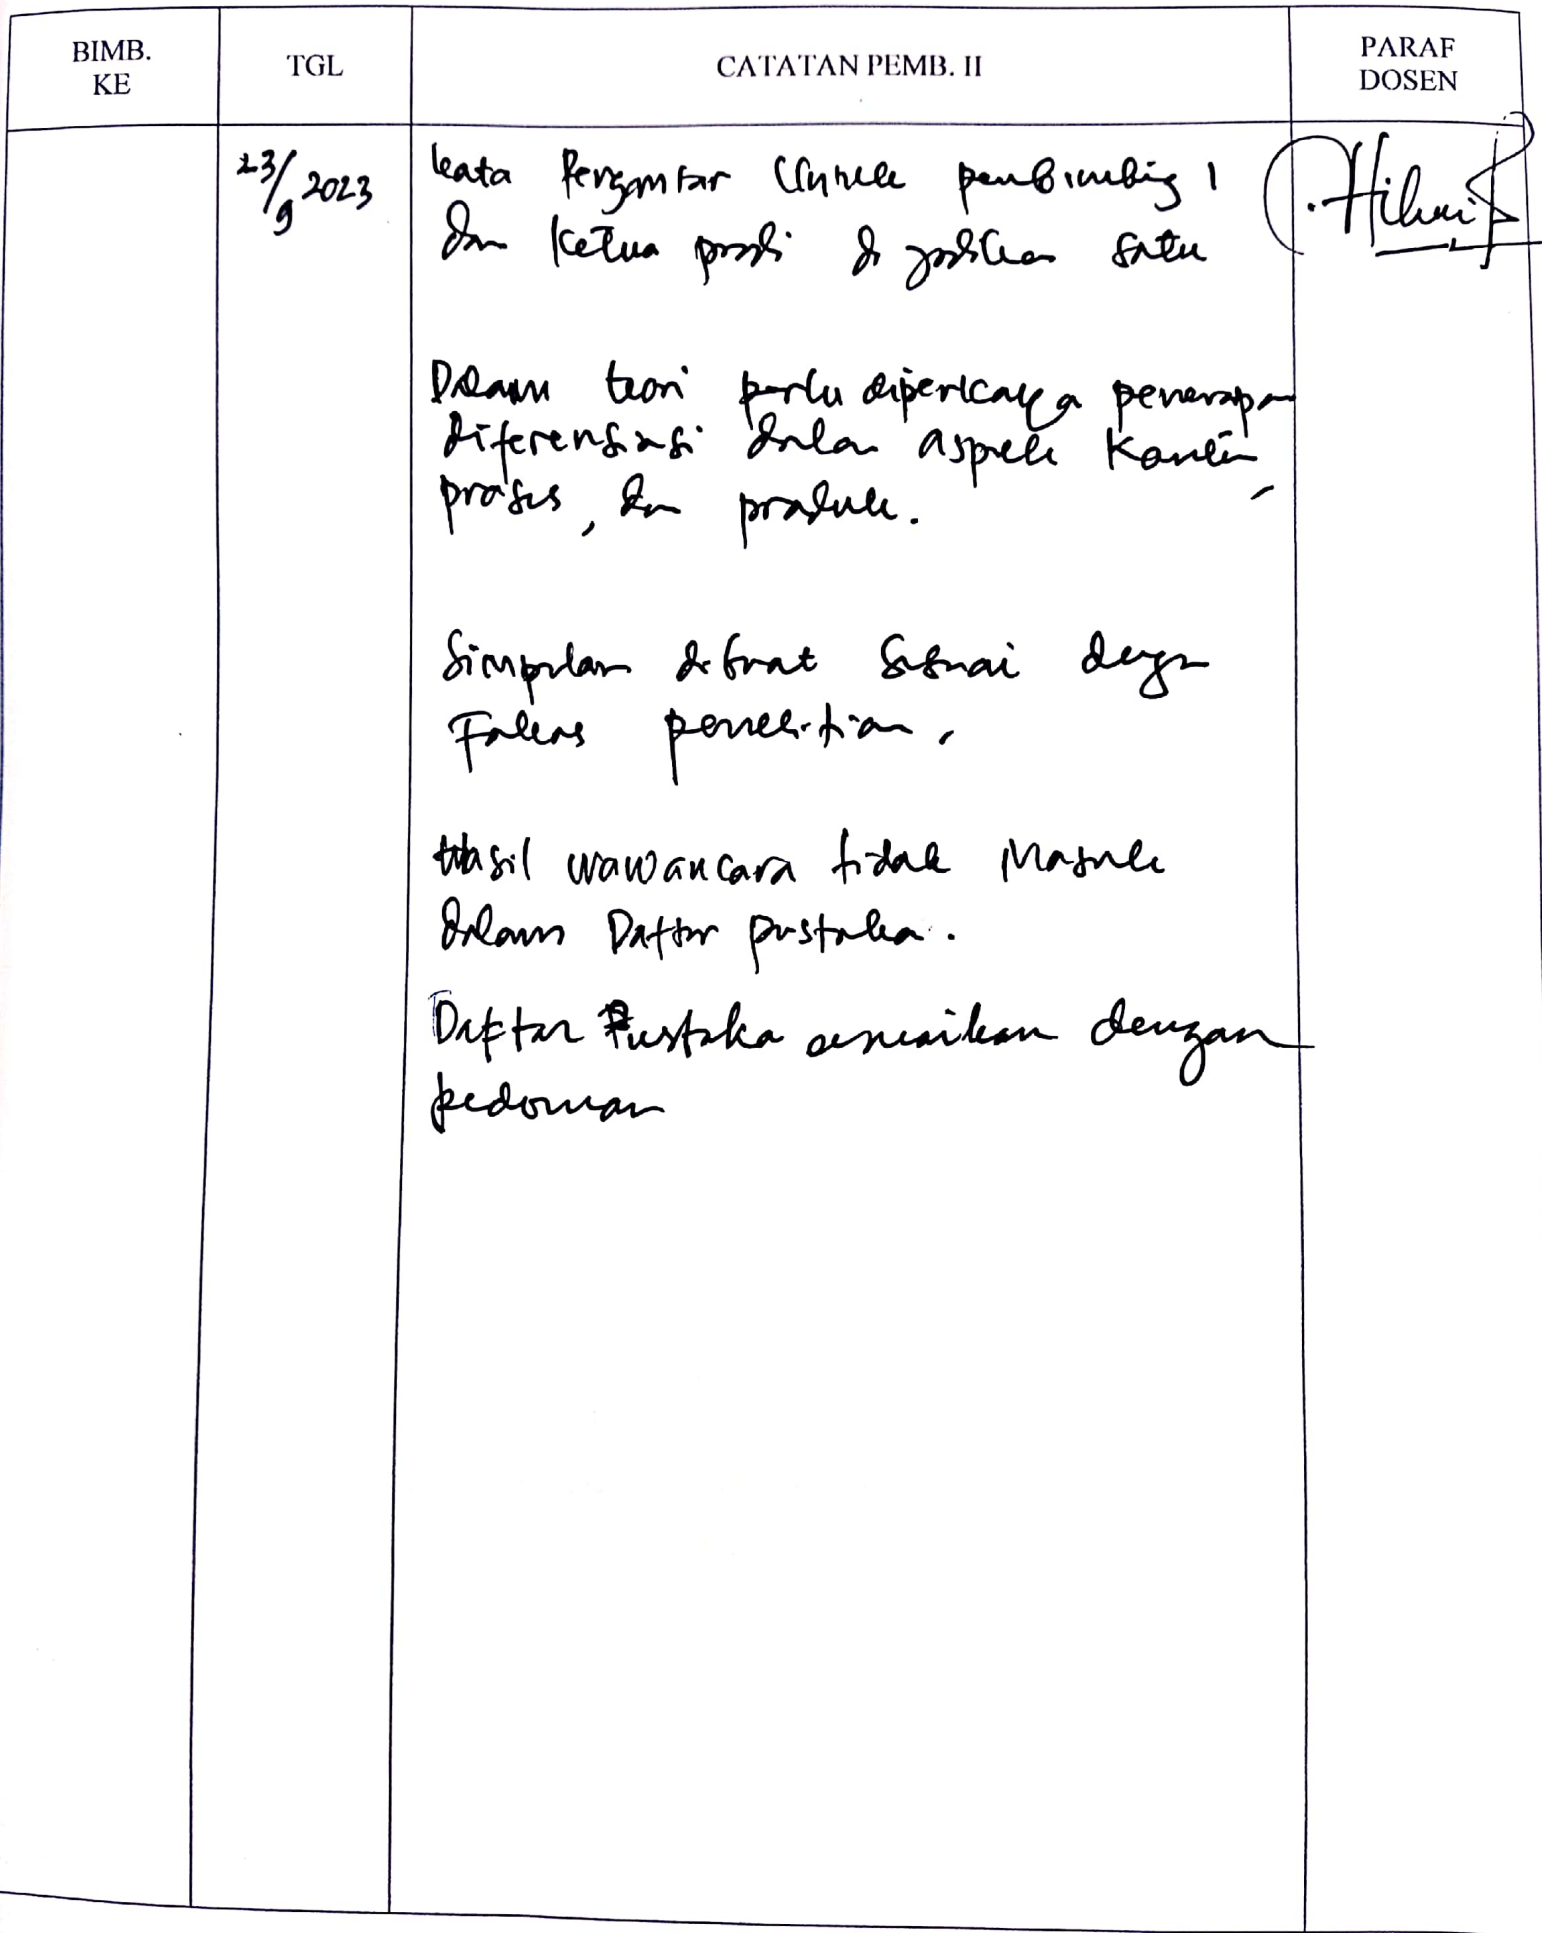 BIMB.
KE
TGL
CATATAN PEMB. II
PARAF
DOSEN
23/9 2023
Kata Pengantar Untuk pembimbing 1
dan Ketua prodi di jadikan satu
Dalam teori perlu diperkaya penerapan
diferensiasi dalam aspek Konten,
proses, dan produk.
Simpulan dibuat sesuai dengan
Fokus penelitian.
Hasil wawancara tidak Masuk
dalam Daftar pustaka.
Daftar Pustaka sesuaikan dengan
pedoman